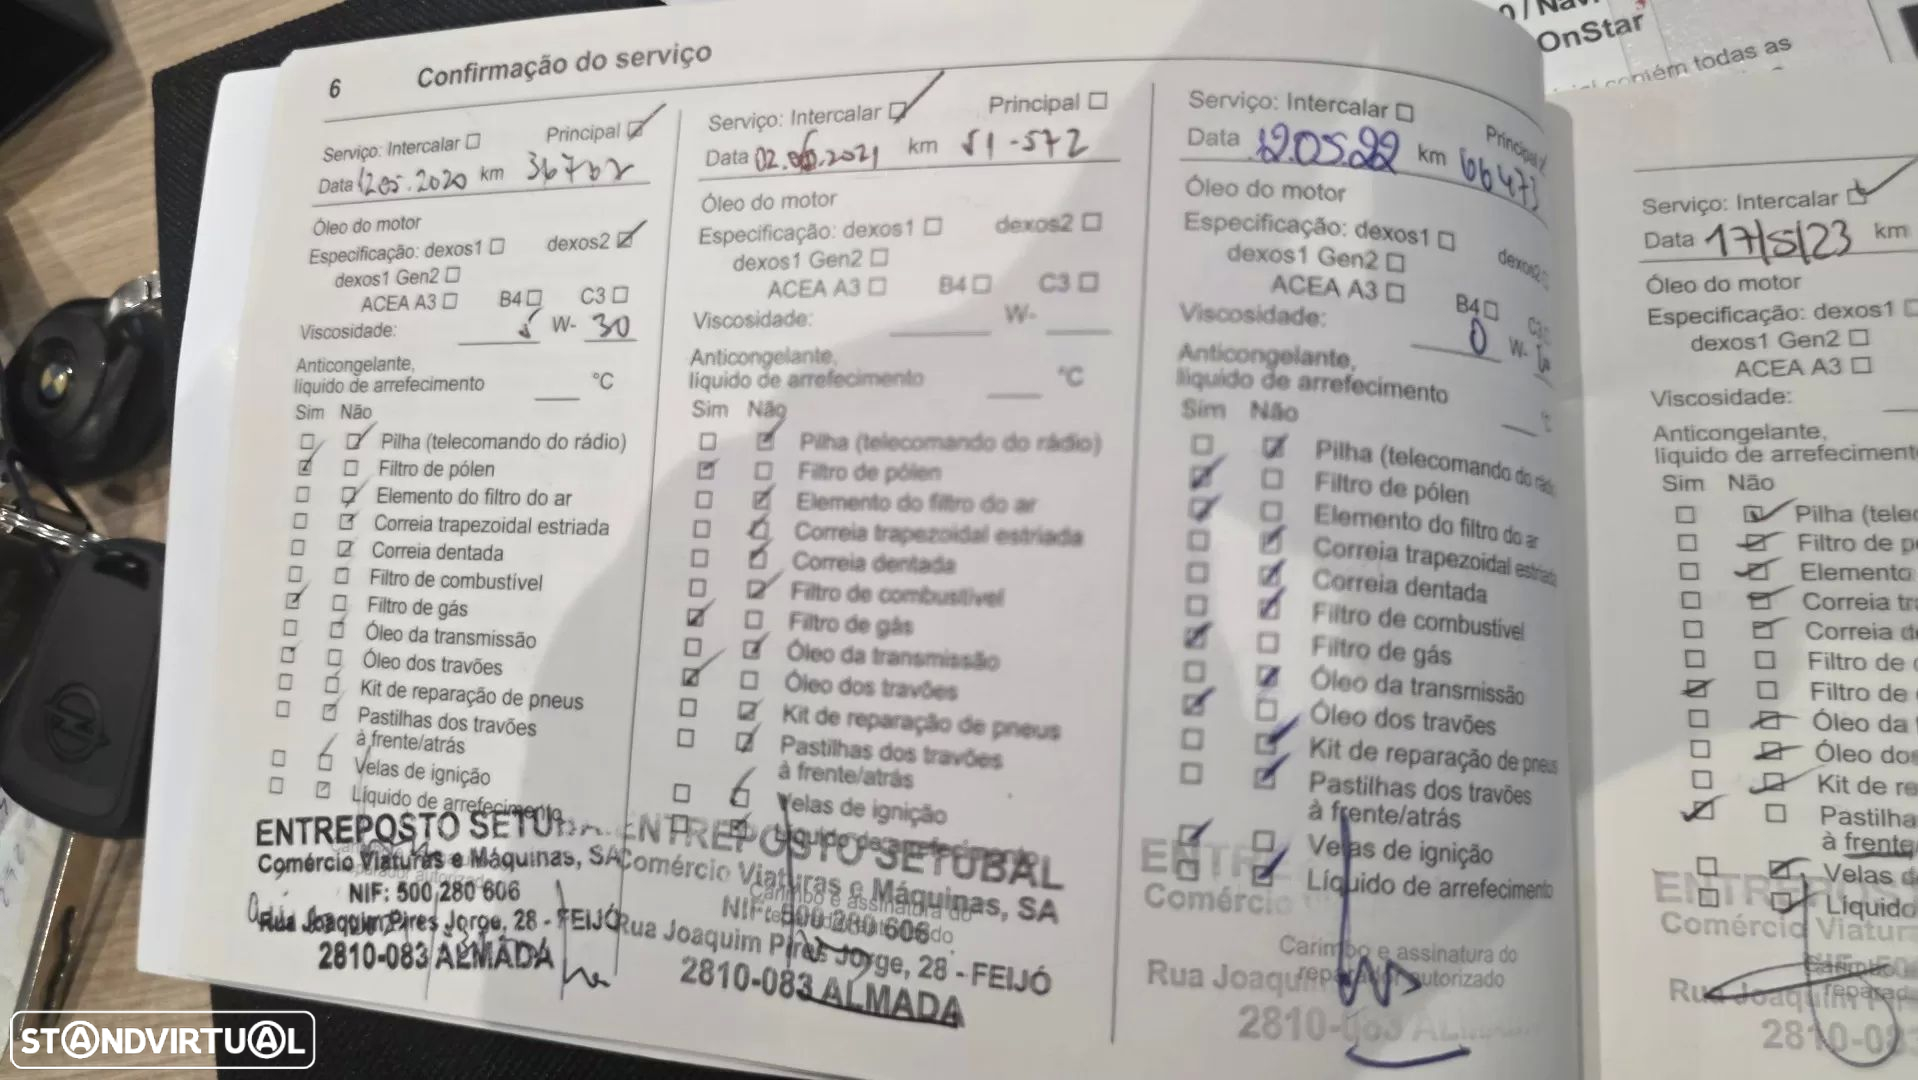 6 Confirmação do serviço
Serviço: Intercalar Principal
Data 12.05.2020 km 36702
Óleo do motor
Especificação: dexos1 dexos2
dexos1 Gen2
ACEA A3 B4 C3
Viscosidade: 5 W- 30
Anticongelante,
líquido de arrefecimento °C
Sim Não
Pilha (telecomando do rádio)
Filtro de pólen
Elemento do filtro do ar
Correia trapezoidal estriada
Correia dentada
Filtro de combustível
Filtro de gás
Óleo da transmissão
Óleo dos travões
Kit de reparação de pneus
Pastilhas dos travões
à frente/atrás
Velas de ignição
Líquido de arrefecimento
ENTREPOSTO SETUBAL
Comércio Viaturas e Máquinas, SA
NIF: 500 280 606
Rua Joaquim Pires Jorge, 28 - FEIJÓ
2810-083 ALMADA
Serviço: Intercalar Principal
Data 02.06.2021 km 51-572
Óleo do motor
Especificação: dexos1 dexos2
dexos1 Gen2
ACEA A3 B4 C3
Viscosidade: W-
Anticongelante,
líquido de arrefecimento °C
Sim Não
Pilha (telecomando do rádio)
Filtro de pólen
Elemento do filtro do ar
Correia trapezoidal estriada
Correia dentada
Filtro de combustível
Filtro de gás
Óleo da transmissão
Óleo dos travões
Kit de reparação de pneus
Pastilhas dos travões
à frente/atrás
Velas de ignição
Líquido de arrefecimento
ENTREPOSTO SETUBAL
Comércio Viaturas e Máquinas, SA
Carimbo e assinatura do
NIF: 500 280 606
Rua Joaquim Pires Jorge, 28 - FEIJÓ
2810-083 ALMADA
Serviço: Intercalar Principal
Data 12.05.22 km 66473
Óleo do motor
Especificação: dexos1 dexos2
dexos1 Gen2
ACEA A3 B4 C3
Viscosidade: 0 W-
Anticongelante,
líquido de arrefecimento
Sim Não
Pilha (telecomando do rádio
Filtro de pólen
Elemento do filtro do ar
Correia trapezoidal estriada
Correia dentada
Filtro de combustível
Filtro de gás
Óleo da transmissão
Óleo dos travões
Kit de reparação de pneus
Pastilhas dos travões
à frente/atrás
Velas de ignição
Líquido de arrefecimento
ENTRE
Comércio
Carimbo e assinatura do
reparador autorizado
Rua Joaqui
2810-083 AL
Serviço: Intercalar
Data 17/5/23 km
Óleo do motor
Especificação: dexos1
dexos1 Gen2
ACEA A3
Viscosidade:
Anticongelante,
líquido de arrefeciment
Sim Não
Pilha (telec
Filtro de p
Elemento
Correia tra
Correia d
Filtro de
Filtro de
Óleo da
Óleo dos
Kit de re
Pastilha
à frente
Velas d
Líquido
ENTREPOS
Comércio Viatur
Rua Joaquim
2810-083
OnStar
contém todas as
STANDVIRTUAL